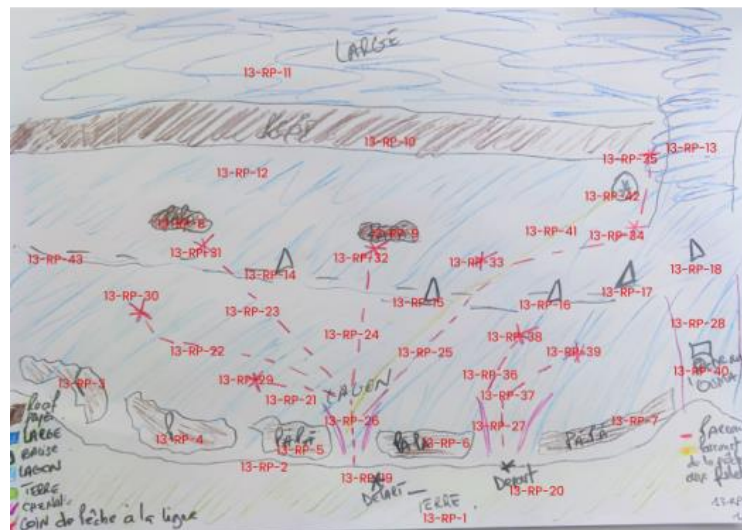 LARGE
13-RP-11
RÉCIF
13-RP-10
13-RP-13
13-RP-35
13-RP-12
13-RP-42
13-RP-8
13-RP-9
13-RP-41
13-RP-34
13-RP-31
13-RP-32
13-RP-33
13-RP-43
13-RP-14
13-RP-18
13-RP-17
13-RP-15
13-RP-16
13-RP-30
13-RP-23
13-RP-28
13-RP-24
13-RP-38
13-RP-22
13-RP-25
13-RP-39
13-RP-3
13-RP-29
13-RP-36
13-RP-40
13-RP-21
LAGON
13-RP-37
13-RP-26
13-RP-27
13-RP-7
13-RP-4
PĀPĀ
13-RP-5
PAPA
13-RP-6
PĀPĀ
13-RP-2
13-RP-19
DÉPART
DÉPART
13-RP-20
TERRE
13-RP-1
LARGE
BALISE
LAGON
TERRE
Coin de Pêche à la ligne
13-RP